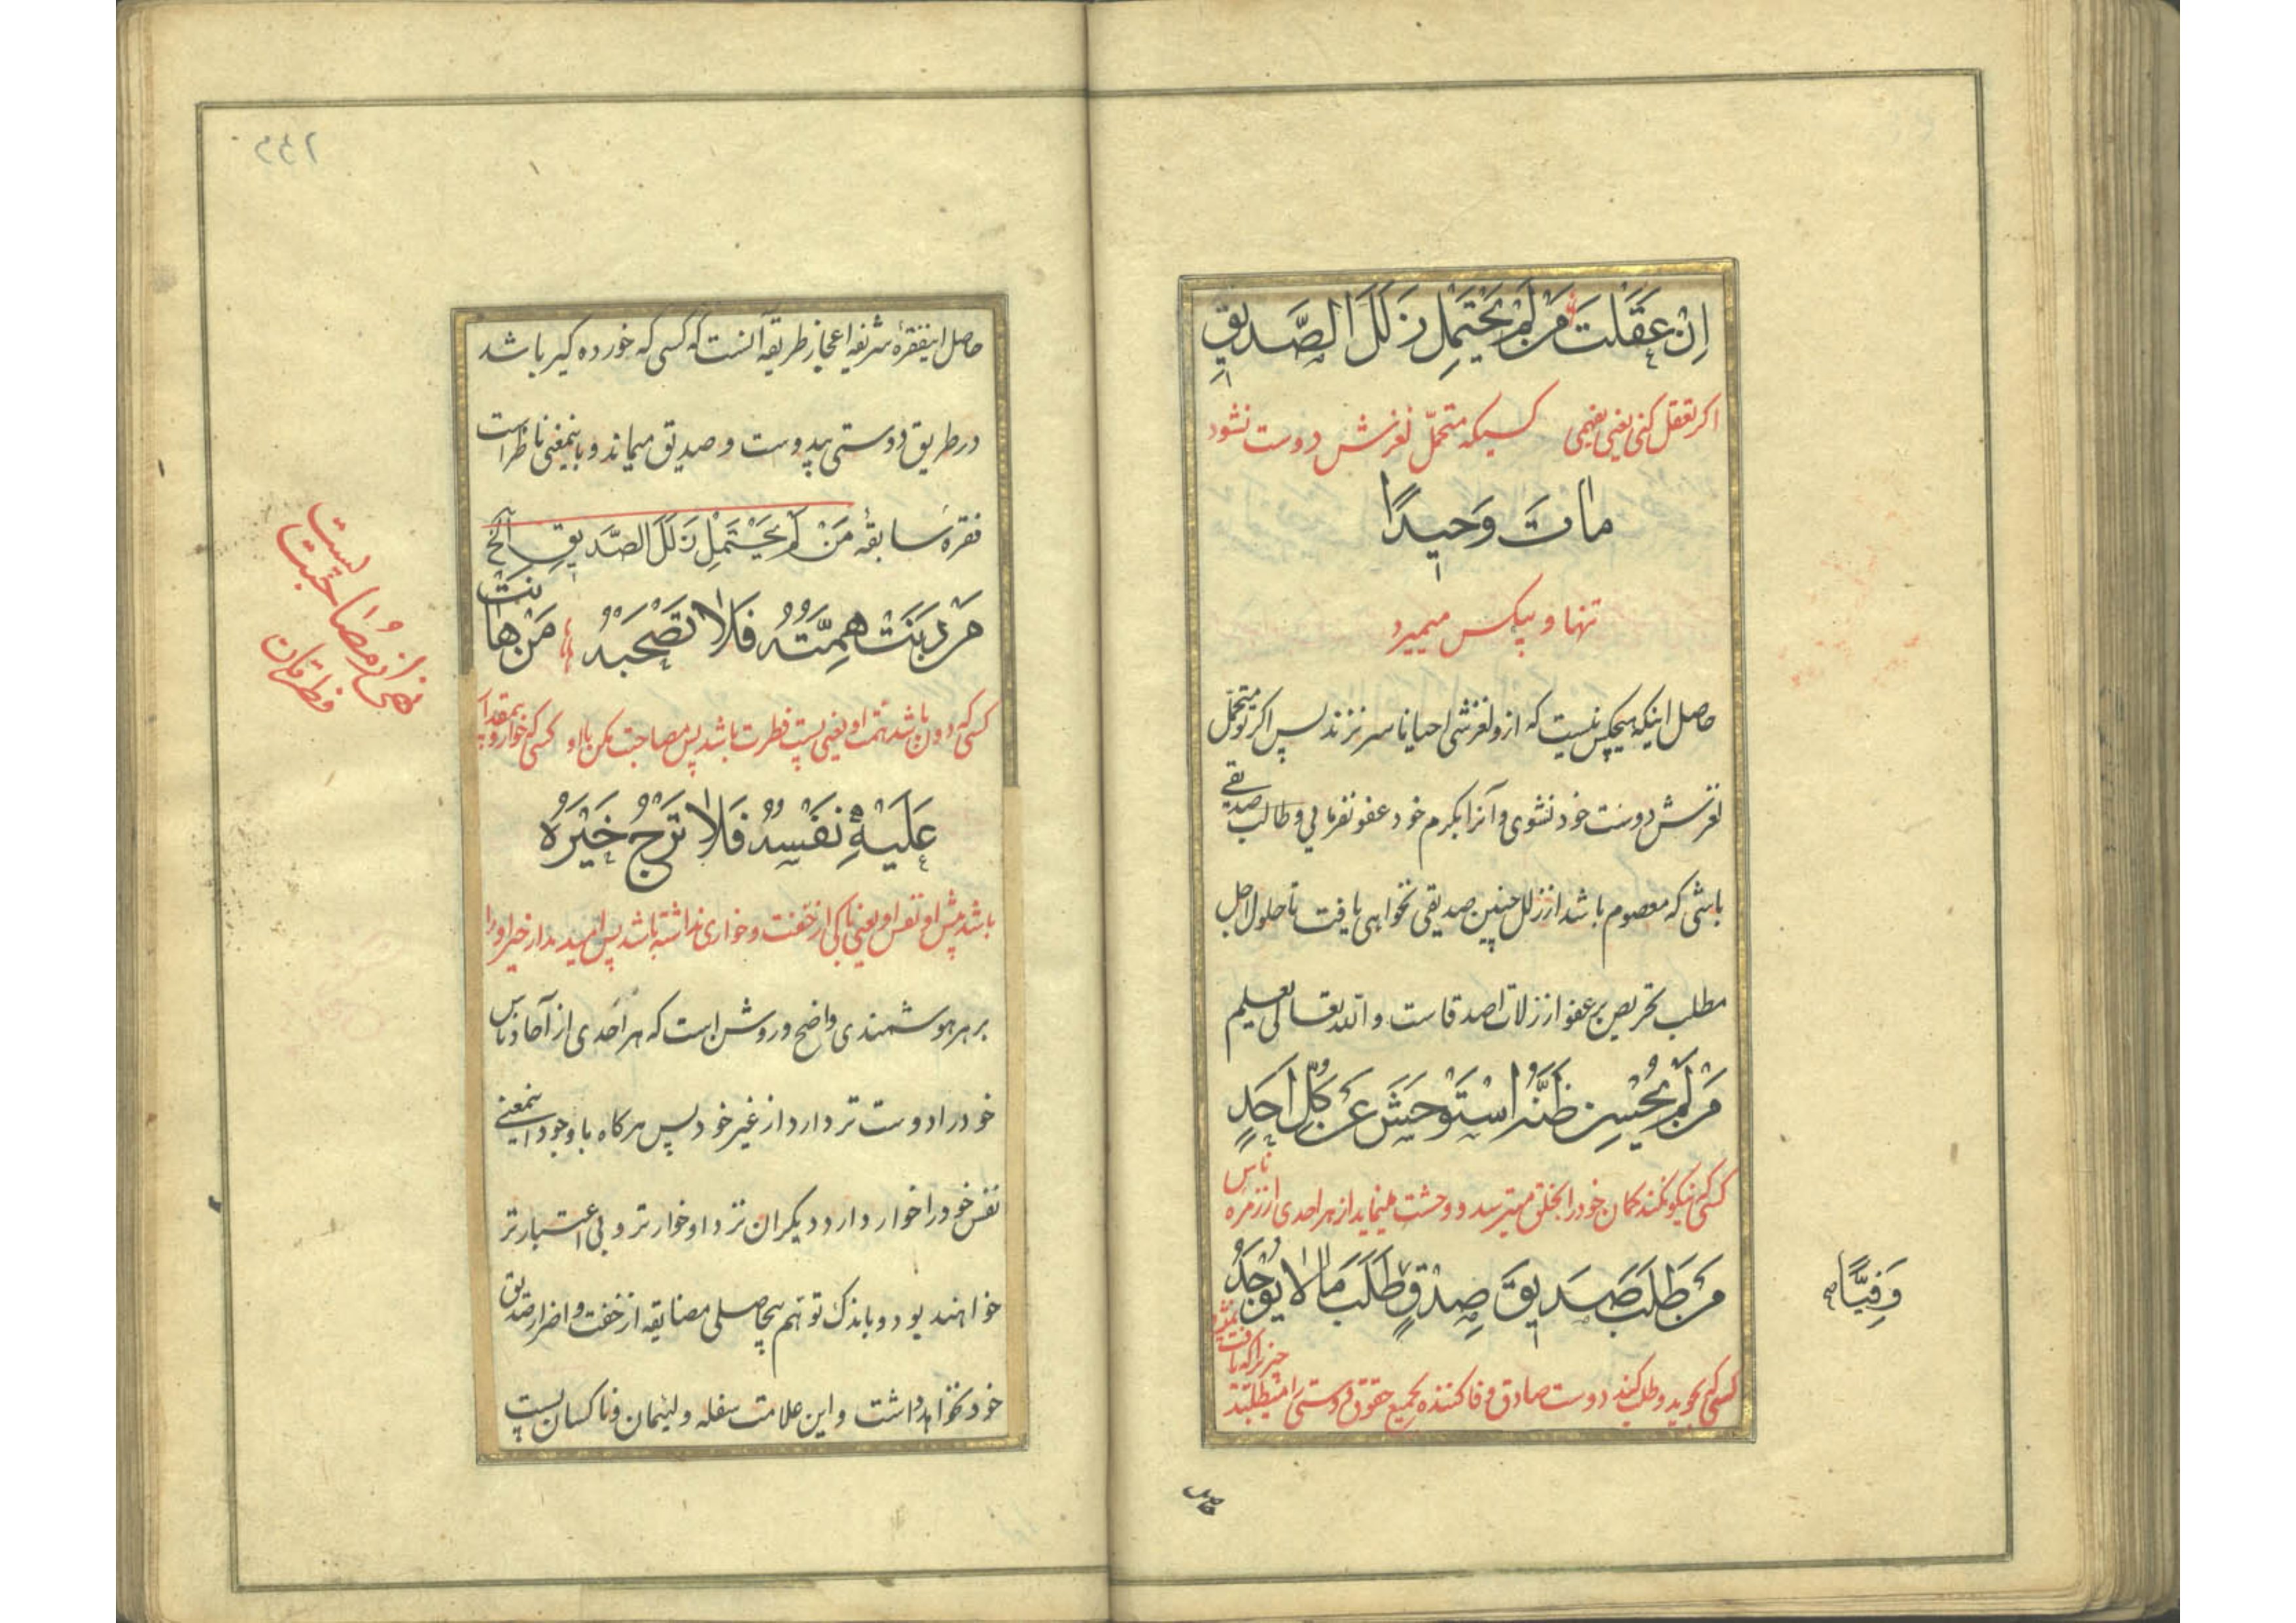 اِنْ عَقَلتَ مَن لَم يَحْتَمِل زَلَلَ الصَّدِيقِ
اکر تعقل کنی یعنی بفهمی کسیکه متحمّل لغزش دوست نشود
ماتَ وَحيدًا
تنها و بیکس میمیرد
حاصل اینکه هیچکس نیست که از و لغزشی احیانا سر نزند پس اکر تو متحمّل
لغزش دوست خود نشوی و آنرا بکرم خود عفو نفرمایی و طالب صدیقی
باشی که معصوم باشد از زلل چنین صدیقی نخواهی یافت تا حلول اجل
مطلب تحریص بر عفو از زلات اصدقاست و الله تعالی یعلم
مَن لَم يُحْسِن ظَنَّهُ اسْتَوْحَشَ عَن كُلِّ اَحَدٍ
کسی که نیکو نکند کمان خود را بخلق میترسد و وحشت مینماید از هر احدی از زمره ناس
مَن طَلَبَ صَديقَ صِدْقٍ طَلَبَ مَا لا يُوجَدُ
وَفِيًّا صح
کسی که بجوید و طلب کند دوست صادق وفا کننده بجمیع حقوق دوستی را میطلبد چیزیرا که یافت نمیشود
حاصل
٢٤٢
حاصل اینفقرهٔ شریفه اعجاز طریقه آنست که کسی که خورده کیر باشد
در طریق دوستی بیدوست و صدیق میماند و باینمعنی ناظر است
فقرهٔ سابقهٔ مَنْ لَمْ يَحْتَمِلْ زَلَلَ الصَّدِيقِ الخ
مَن دَنَتْ هِمَّتُهُ فَلا تَصْحَبْهُ مَنْ هانَتْ
کسی که دون باشد همّت او یعنی پست فطرت باشد پس مصاحبت مکن با او کسی که خوار و بیمقدار
نهی از مُصاحبت پست فطرتان
عَلَيْهِ نَفْسُهُ فَلا تَرْجُ خَيْرَهُ
باشد پیش او نفس او یعنی باکی از خفت و خواری نداشته باشد پس امید مدار خیر او را
بر هر هوشمندی واضح و روشن است که هر اَحدی از آحاد ناس
خود را دوست تر دارد از غیر خود پس هرکاه با وجود اینمعنی
نفس خود را خوار دارد دیکران نزد او خوار تر و بی اعتبار تر
خواهند بود و باندک توهّم بیحاصلی مضایقه از خفت و اضرار صدیق
خود نخواهد داشت و این علامت سفله و لئیمان و ناکسان پست